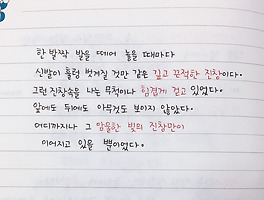 한 발짝 발을 떼어 놓을 때마다
신발이 훌렁 벗겨질 것만 같은 깊고 끈적한 진창이다.
그런 진창속을 나는 무척이나 힘겹게 걷고 있었다.
앞에도 뒤에도 아무것도 보이지 않았다.
어디까지나 그 암울한 빛의 진창만이
이어지고 있을 뿐이었다.